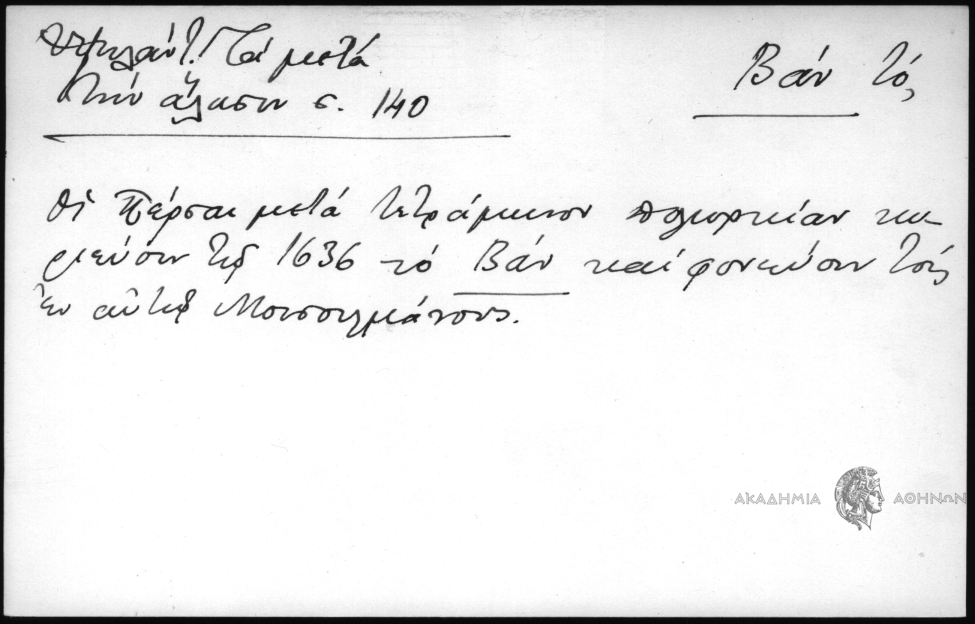 Ὑψηλάντ. Τά μετά
τήν ἅλωσιν σ. 140
Βάν τό,
Οἱ Πέρσαι μετά τετράμηνον πολιορκίαν κυ-
ριεύουν τῷ 1636 τό Βάν καί φονεύουν τούς
ἐν αὐτῷ Μουσουλμάνους.
ΑΚΑΔΗΜΙΑ ΑΘΗΝΩΝ